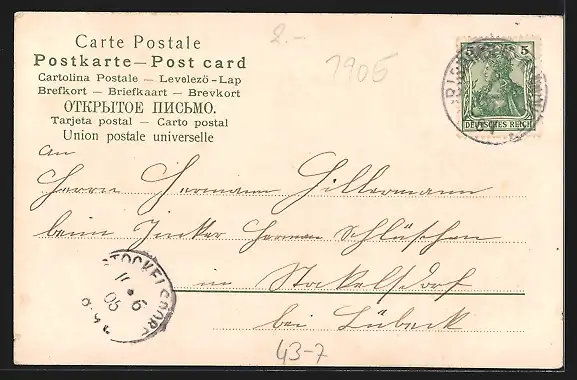 Carte Postale
Postkarte — Post card
Cartolina Postale — Levelező-Lap
Brefkort — Briefkaart — Brevkort
ОТКРЫТОЕ ПИСЬМО.
Tarjeta postal — Carto postal
Union postale universelle
2.-
1905
5 5
DEUTSCHES REICH
An
Herrn Hermann Hillermann
beim Junker Herman Schlüschen
in Stockelsdorf
bei Lübeck
STOCKELSDORF
11 6
05
43-7